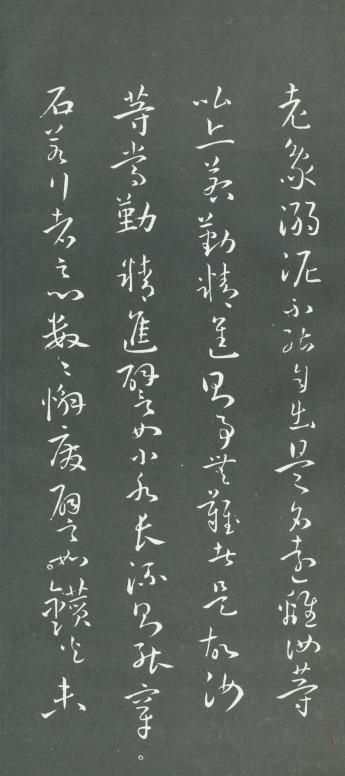 老象溺泥不能自出是名遠離汝等
比丘若勤精進則事無難者是故汝
等當勤精進譬如小水長流則能穿。
石若行者之心數數懈廢譬如。鑽火未